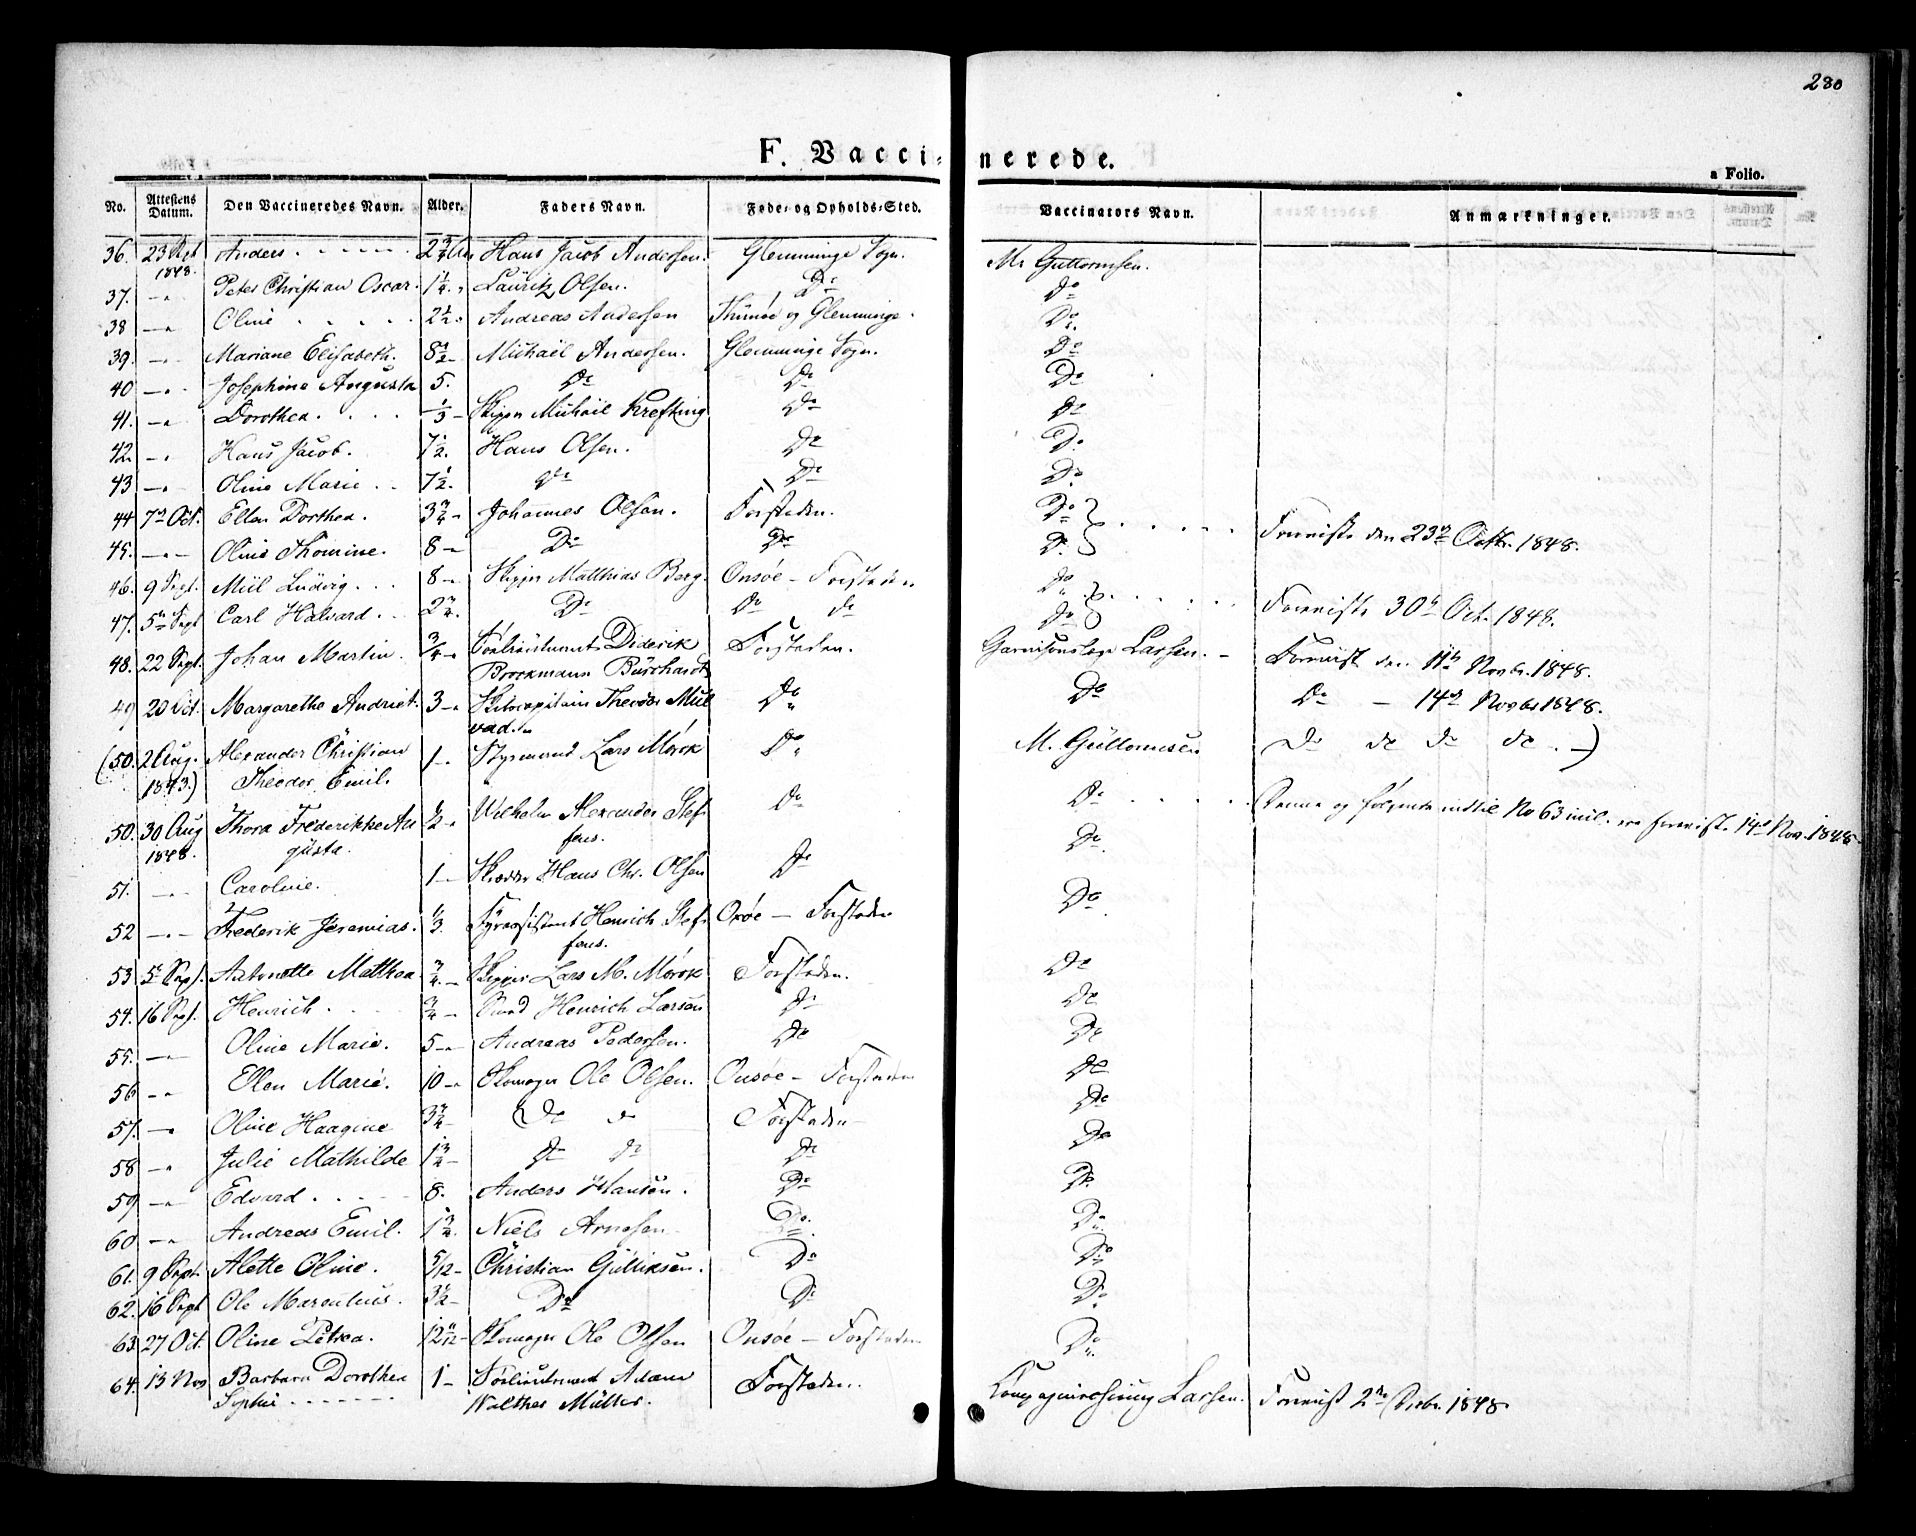 280
F. Vaccinerede.
a Folio.
No. Attestens Datum. Den Vaccineredes Navn. Alder. Faders Navn. Føde- og Opholds-Sted. Vaccinators Navn. Anmærkninger.
36. 23 Sept 1848. Anders 2 3/4 Aar Hans Jacob Andersen. Glemminge Sogn. Mr Guttormsen.
37. —"— Peter Christian Oscar. 1 1/4 " Lauritz Olsen. Do Do
38 —"— Oline 2 1/2 " Andreas Andersen Thunøe og Glemminge. Do
39. —"— Mariane Elisabeth. 8 1/2 — Michael Andersen. Glemminge Sogn. Do
40 —"— Josephine Augusta 5. Do Do Do
41. —"— Dorothea. 1/3 — Skipper Michael Krefting Do Do
42. —"— Hans Jacob. 7 1/2. Hans Olsen. Do Do
43 —"— Oline Marie 7 1/2. Do Do Do
44 7de Oct. Ellen Dorthea. 3 3/4 — Johannes Olsen. Forstaden. Do
45. —"— Oline Thomine. 8 —" Do Do Do Forevist den 23de Octbr. 1848.
46. 9 Sept. Ludvig 8 —" Skipper Matthias Berg. Onsøe — Forstaden Do
47. 5te Sept Carl Halvard 2 3/4. Do Do do Do Forevist 30te Oct. 1848.
48. 22 Sept. Johan Martin 3/4 —" Diderik Forstaden. Larsen. — Forevist den 11te Novbr. 1848.
Brockmann Burchardt
49 20 Oct. Margarethe Andriet. 3 —" Theodor Do Do Do — 14de Novbr 1848.
(50. 2 Aug. 1843.) Alexander Christian 1 —" Styrmand Lars Mørk Do M. Guttormsen Do do do do. —)
Theodor Emil.
50. 30 Aug 1848. Thora Frederikke Au 1/2 —" Wilhelm Alexander Stef Do Do Denne og følgende indtil No 63 incl. ere forevist 14de Nov. 1848.
gusta. fens. Do
51. —"— Caroline. 1 —" Skrædder Hans Chr. Olsen Do
52 —"— Frederik Jeremias. 1/3. Henrich Stef Onsøe — Forstaden Do
fens.
53. 5te Sept. Antonette Matthea 3/4. — Skipper Lars M. Mørk Forstaden. Do
54. 16 Sept. Henrich. 3/4 — Henrich Larsen Do Do
55. —"— Oline Marie. 5 —" Andreas Pedersen. Do Do
56 —"— Ellen Marie. 10 —" Skomager Ole Olsen. Onsøe — Forstaden Do
57. —"— Oline Haagine 3 3/4 — Do do Forstaden — Do
58 —"— Julie Mathilde 1 1/2 — Do do Do Do
59 —"— Edvard 8. Anders Hansen. Do Do
60 —"— Andreas Emil. 1 1/2. Niels Arnesen. Do. Do
61. 9 Sept. Alette Oline. 5/12 — Christian Gulliksen. Do Do
62. 16 Sept Ole Marentius. 3 1/2 — Do Do Do
63. 27 Oct. Oline Petrea. 12 — Skomager Ole Olsen Onsøe — Forstaden Do
64. 13 Nov Barbara Dorothea 1 — Adam Forstaden. Larsen. Forevist 2den Decbr. 1848.
Sophie Walther Müller.